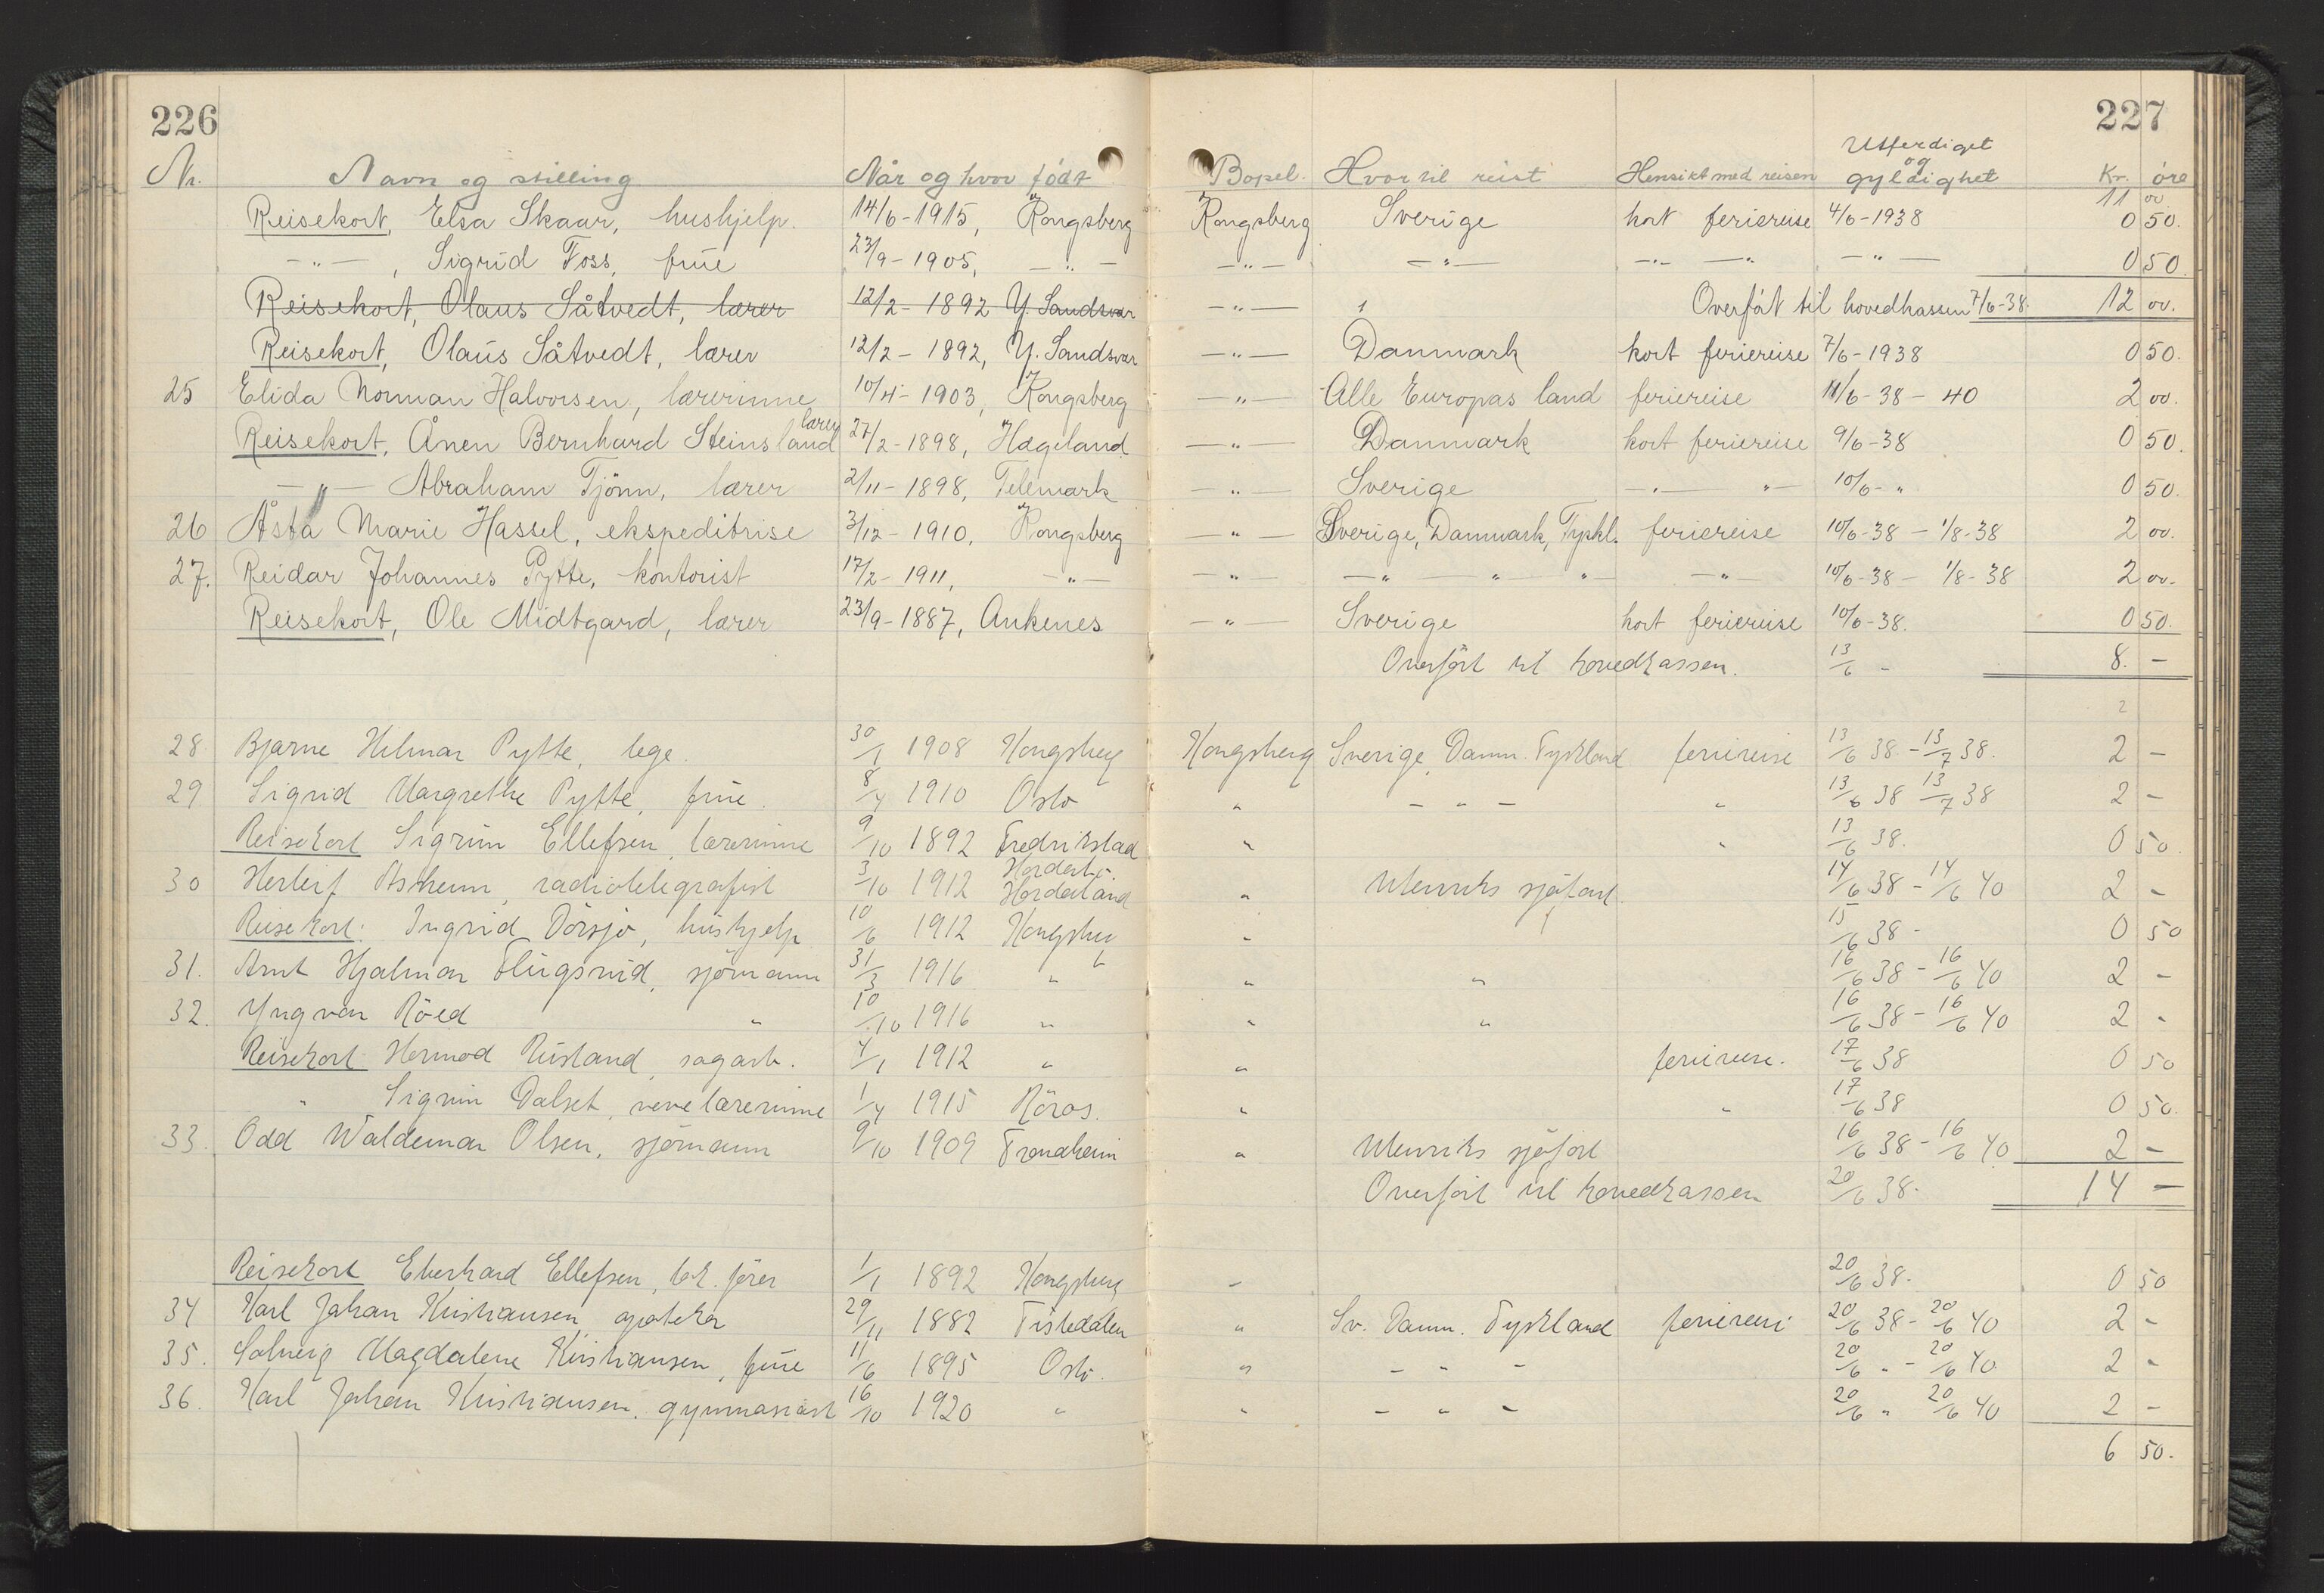 226
227
Nr. Navn og stilling Når og hvor født Bopel. Hvor til reist Hensikt med reisen Utferdiget og gyldighet Kr. øre
11 00
Reisekort, Elsa Skaar, hushjelp. 14/6-1915, Kongsberg Kongsberg Sverige kort feriereise 4/6-1938 0 50.
—"—, Sigrid Foss, frue 23/9-1905, —"— —"— —"— —"— —"— —"— 0 50.
Reisekort, Olaus Såtvedt, lærer 12/2-1892 Y. Sandsvær —"— Overført til hovedkassen 7/6-38. 12 00.
Reisekort, Olaus Såtvedt, lærer 12/2-1892, Y. Sandsvær —"— Danmark kort feriereise 7/6-1938 0 50.
25 Elida Norman Halvorsen, lærerinne 10/4-1903, Kongsberg —"— Alle Europas land feriereise 11/6-38-40 2 00.
Reisekort, Ånen Bernhard Steinsland lærer 27/2-1898, Hægeland —"— Danmark kort feriereise 9/6-38 0 50.
—"— Abraham Tjönn, lærer 2/11-1898, Telemark —"— Sverige —"— "— 10/6-" 0 50.
26 Åsta Marie Hassel, ekspeditrise 3/12-1910, Kongsberg —"— Sverige, Danmark, Tyskl. feriereise 10/6-38-1/8-38 2 00.
27. Reidar Johannes Pytte, kontorist 17/2-1911, —"— —"— —"— " "— —"— 10/6-38-1/8-38 2 00-
Reisekort, Ole Midtgard, lærer 23/9-1887, Ankenes —"— Sverige kort feriereise 10/6-38. 0 50.
Overført til hovedkassen. 13/6 - 8. -
2
28 Bjarne Hilmar Pytte, lege. 30/1 1908 Kongsberg Kongsberg Sverige, Danm. Tyskland feriereise 13/6 38.-13/7 38. 2 -
29 Sigrid Margrethe Pytte, frue. 8/4 1910 Oslo " - " - " 13/6 38 13/7 38 2 -
Reisekort Sigrun Ellefsen, lærerinne 9/10 1892 Fredrikstad " " 13/6 38. 0 50.
30 Herleif Askeim, radiotelegrafist 3/10 1912 Hordaland " Utenriks sjöfart 14/6 38-14/6 40 2 -
Reisekort: Ingrid Dörsjö, hushjelp 10/6 1912 Kongsberg " 15/6 38- 0 50
31. Arnt Hjalmar Flugsrud, sjömann 31/3 1916 " " " 16/6 38-16/6 40 2 -
32. Yngvar Röed " 10/10 1916 " " " 16/6 38-16/6 40 2 -
Reisekort Hermod Rusland, sagarb. 4/1 1912 " " feriereise. 17/6 38 0 50
" Sigrun Dalset, vevelærerinne 1/4 1915 Röros. " " 17/6 38 0 50.
33. Odd Waldemar Olsen, sjömann 9/10 1909 Trondheim " Utenriks sjöfart 16/6 38-16/6 40 2 -
Overført til hovedkassen 20/6 38. 14 -
Reisekort Eberhard Ellefsen, lok. förer 1/1 1892 Kongsberg " 20/6 38. 0 50
34 Karl Johan Kristiansen, apoteker 29/11 1882 Tistedalen " Sv. Danm. Tyskland feriereise 20/6 38-20/6 40 2 -
35. Solveig Magdalene Kristiansen, frue 11/6 1895 Oslo. " - " - 20/6 "-20/6 40 2 -
36. Karl Johan Kristiansen, gymnasiast 16/10 1920 " " - " - 20/6 " 20/6 40 2 -
6 50.